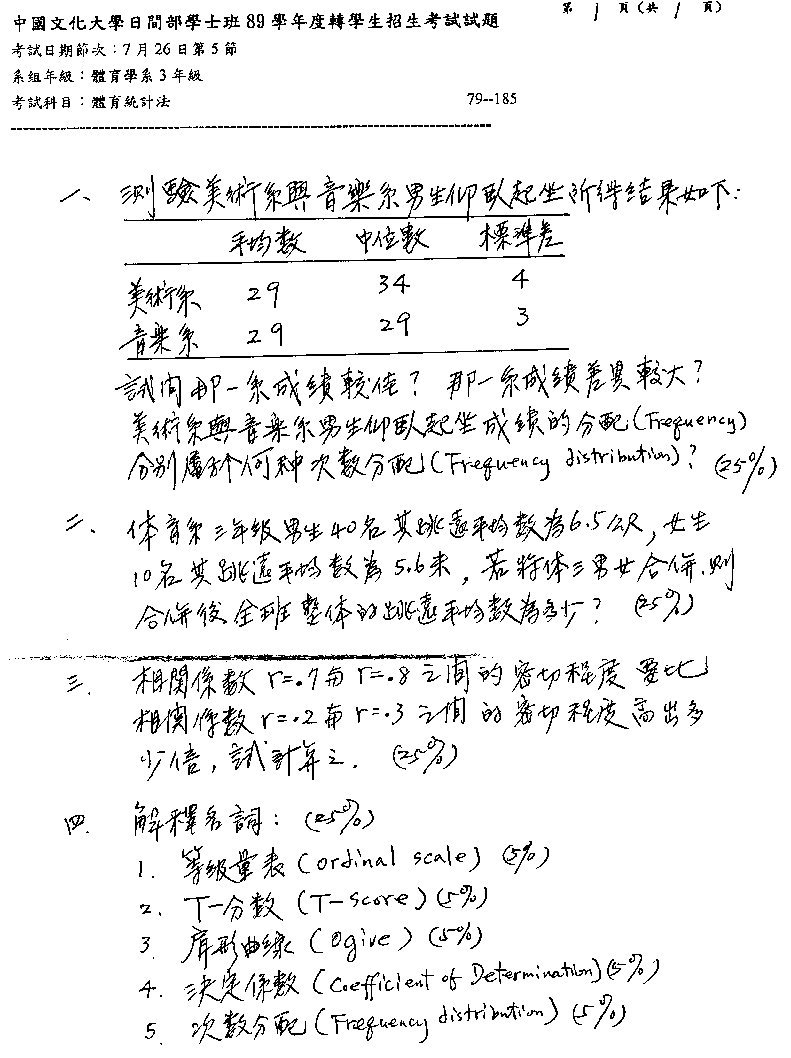 中國文化大學日間部學士班89學年度轉學生招生考試試題
第 1 頁(共 1 頁)
考試日期節次:7月26日第5節
系組年級:體育學系3年級
考試科目:體育統計法 79--185
一、測驗美術系與音樂系男生仰臥起坐所得結果如下:
平均數 中位數 標準差
美術系 29 34 4
音樂系 29 29 3
試问那一系成績較佳?那一系成績差異較大?
美術系與音樂系男生仰臥起坐成績的分配(Frequency)
分別屬於何种次數分配(Frequency distribution)?(25%)
二、体育系三年級男生40名其跳遠平均數為6.5公尺,女生
10名其跳遠平均數為5.6米,若將体三男女合併,則
合併後全班整体的跳遠平均數為多少?(25%)
三、相關係數r=.7与r=.8之間的密切程度要比
相関係數r=.2与r=.3之间的密切程度高出多
少倍,試計算之.(25%)
四.解釋名詞:(25%)
1.等級量表(ordinal scale)(5%)
2.T-分數(T-score)(5%)
3.肩形曲線(Ogive)(5%)
4.決定係數(Coefficient of Determination)(5%)
5.次數分配(Frequency distribution)(5%)